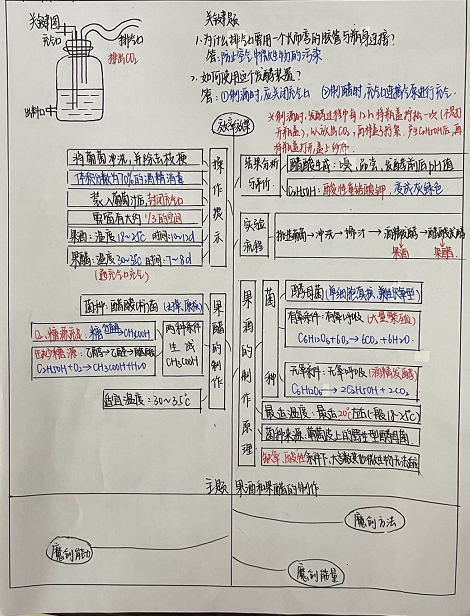 关键图
关键题
充气口
排气口
排出CO₂
出料口
1.为什么排气口要用一个长而弯的胶管与瓶身连接?
答:防止空气中微生物的污染
2.如何使用这个发酵装置?
答:①制酒时,应关闭充气口 ②制醋时,充气口连接气泵进行充气.
操作提示
将葡萄冲洗,并除去枝梗
体积分数为70%的酒精消毒
装入葡萄汁后,封闭充气口
要留有大约1/3的空间
果酒:温度18~25℃ 时间:10~12d
果醋:温度30~35℃ 时间:7~8d
(适时充气口充气)
结果分析与评价
醋酸生成:
C₂H₅OH:酸性重铬酸钾 变成灰绿色
实验流程
挑选葡萄→冲洗→榨汁→酒精发酵→醋酸发酵
果酒
果醋
果醋的制作
菌种:醋酸(杆)菌
O₂、糖源充足:糖→CH₃COOH
缺少糖源:乙醇→乙醛→醋酸
C₂H₅OH+O₂→CH₃COOH+H₂O
两种条件生成CH₃COOH
适宜温度:30~35℃
果酒的制作原理
菌种
酵母菌(单细胞真核,兼性厌氧型)
有氧条件:有氧呼吸(大量繁殖)
C₆H₁₂O₆+6O₂→6CO₂+6H₂O
无氧条件:无氧呼吸(酒精发酵)
C₆H₁₂O₆→2C₂H₅OH+2CO₂
最适温度:最适20℃左右(一般18~25℃)
菌种来源:葡萄皮上的野生型酵母菌
缺氧、酸性条件下,大多数其他微生物无法适应
主题 果酒和果醋的制作
魔剑方法
魔剑能力
魔剑能量